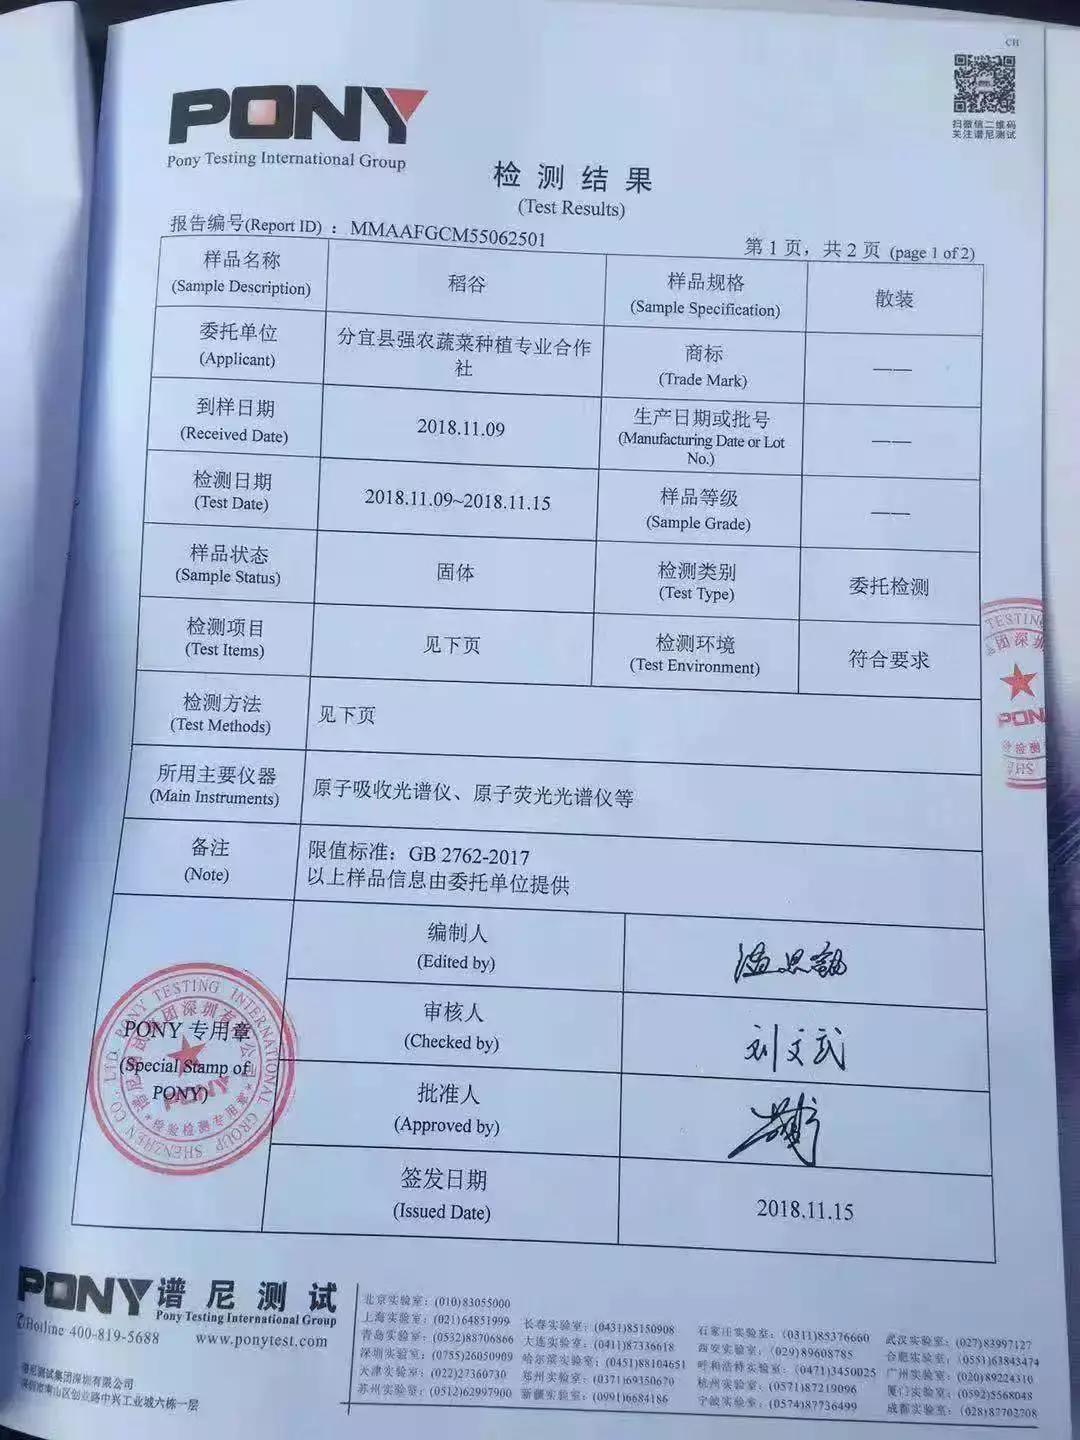 CH
PONY
Pony Testing International Group
扫微信二维码
关注谱尼测试
检测结果
(Test Results)
报告编号(Report ID) : MMAAFGCM55062501
第 1 页，共 2 页 (page 1 of 2)
样品名称
(Sample Description)
稻谷
样品规格
(Sample Specification)
散装
委托单位
(Applicant)
分宜县强农蔬菜种植专业合作
社
商标
(Trade Mark)
——
到样日期
(Received Date)
2018.11.09
生产日期或批号
(Manufacturing Date or Lot
No.)
——
检测日期
(Test Date)
2018.11.09~2018.11.15
样品等级
(Sample Grade)
——
样品状态
(Sample Status)
固体
检测类别
(Test Type)
委托检测
检测项目
(Test Items)
见下页
检测环境
(Test Environment)
符合要求
检测方法
(Test Methods)
见下页
所用主要仪器
(Main Instruments)
原子吸收光谱仪、原子荧光光谱仪等
备注
(Note)
限值标准：GB 2762-2017
以上样品信息由委托单位提供
PONY 专用章
(Special Stamp of
PONY)
编制人
(Edited by)
审核人
(Checked by)
刘文武
批准人
(Approved by)
签发日期
(Issued Date)
2018.11.15
PONY TESTING INTERNATIONAL GROUP SHENZHEN CO., LTD
PONY
检验检测专用章
PONY 谱尼测试
Pony Testing International Group
Hotline 400-819-5688 www.ponytest.com
谱尼测试集团深圳有限公司
深圳市南山区创业路中兴工业城六栋一层
北京实验室：(010)83055000
上海实验室：(021)64851999
青岛实验室：(0532)88706866
深圳实验室：(0755)26050909
天津实验室：(022)27360730
苏州实验室：(0512)62997900
长春实验室：(0431)85150908
大连实验室：(0411)87336618
哈尔滨实验室：(0451)88104651
郑州实验室：(0371)69350670
新疆实验室：(0991)6684186
石家庄实验室：(0311)85376660
西安实验室：(029)89608785
呼和浩特实验室：(0471)3450025
杭州实验室：(0571)87219096
宁波实验室：(0574)87736499
武汉实验室：(027)83997127
合肥实验室：(0551)63843474
广州实验室：(020)89224310
厦门实验室：(0592)5568048
成都实验室：(028)87702708